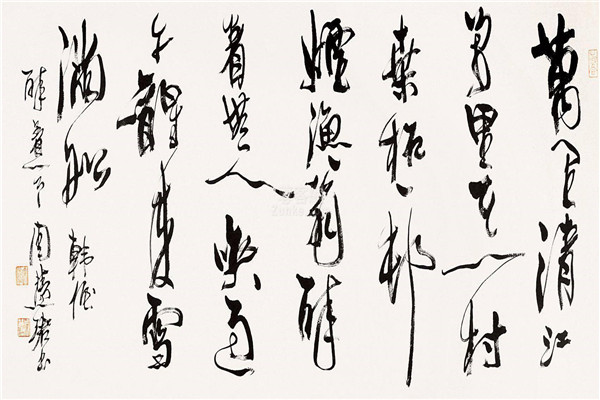 萬里清江
萬里天一村
桑柘一村
煙漁翁醉
着無人喚過
午醒來雪
滿船 韓偓
醉着 周慧珺書